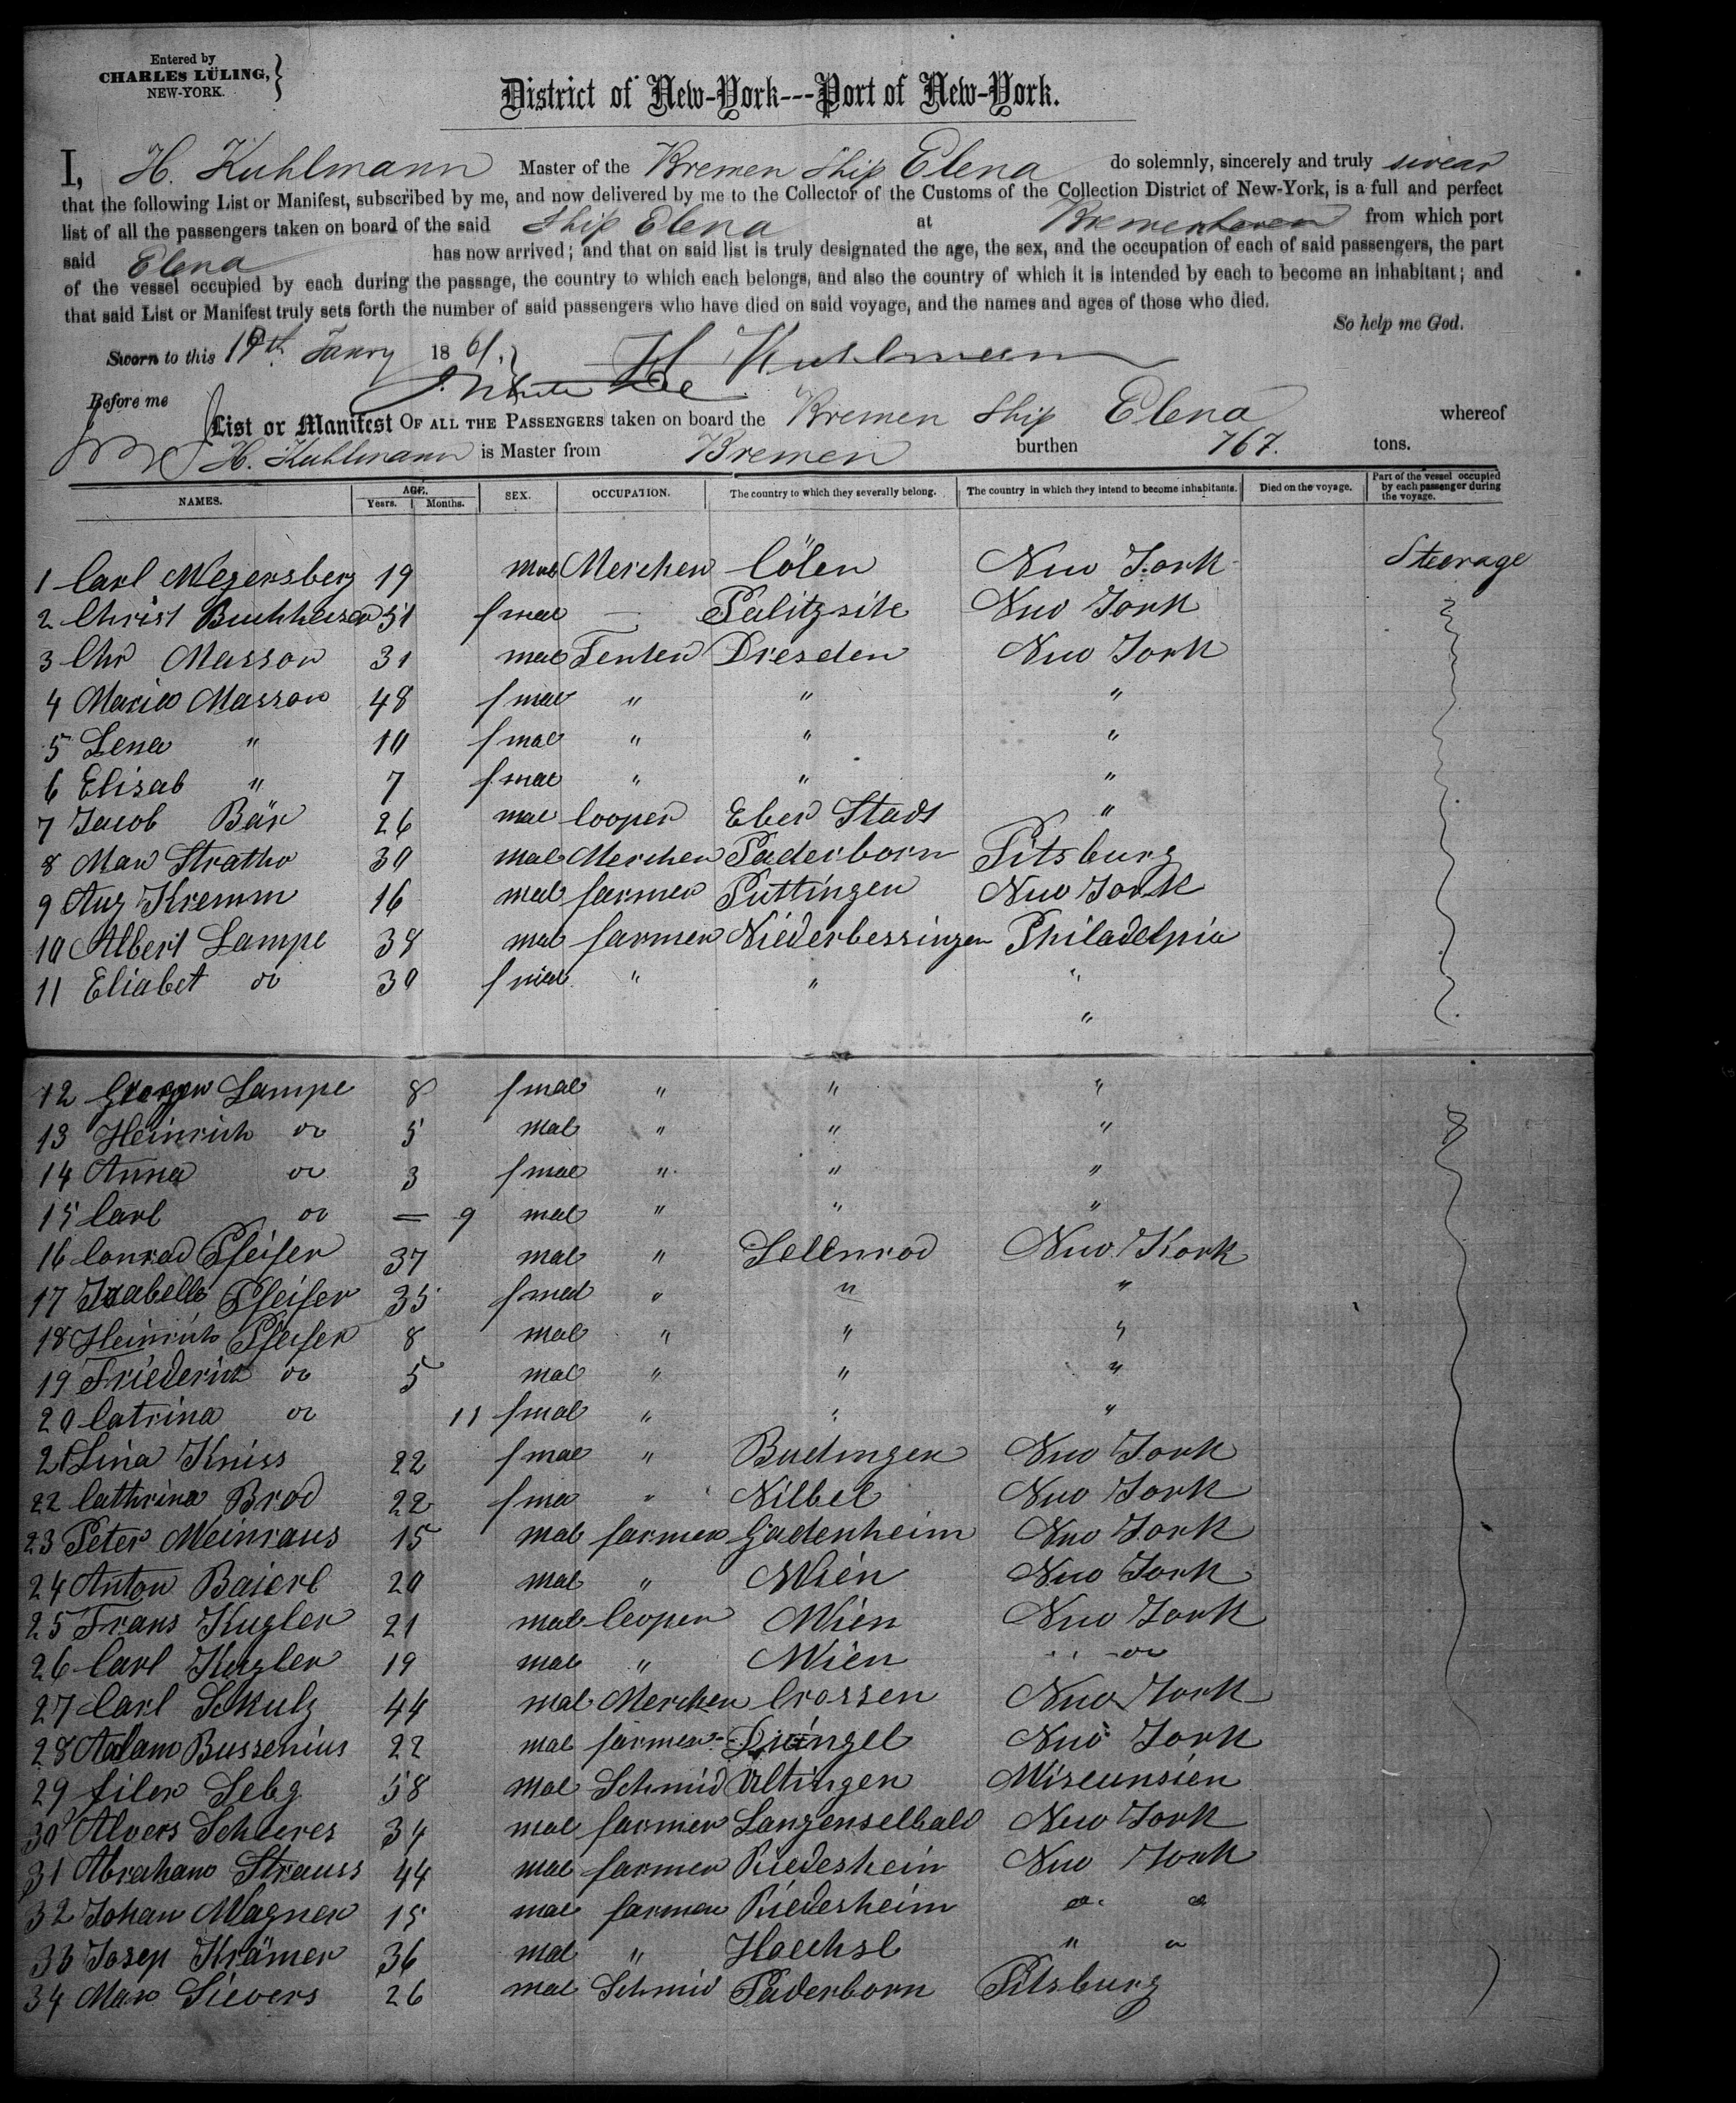 Entered by
CHARLES LÜLING,
NEW-YORK.
District of New-York---Port of New-York.
I, H. Kuhlmann Master of the Bremen Ship Elena do solemnly, sincerely and truly swear
that the following List or Manifest, subscribed by me, and now delivered by me to the Collector of the Customs of the Collection District of New-York, is a full and perfect
list of all the passengers taken on board of the said Ship Elena at Bremerhaven from which port
said Elena has now arrived; and that on said list is truly designated the age, the sex, and the occupation of each of said passengers, the part
of the vessel occupied by each during the passage, the country to which each belongs, and also the country of which it is intended by each to become an inhabitant; and
that said List or Manifest truly sets forth the number of said passengers who have died on said voyage, and the names and ages of those who died.
So help me God.
Sworn to this 19th Janry 1861. H Kuhlmann
Before me
List or Manifest OF ALL THE PASSENGERS taken on board the Bremen Ship Elena whereof
H. Kuhlmann is Master from Bremen burthen 767. tons.
NAMES. AGE. Years. Months. SEX. OCCUPATION. The country to which they severally belong. The country in which they intend to become inhabitants. Died on the voyage. Part of the vessel occupied by each passenger during the voyage.
1 Carl Megersberg 19 mal Merchen Cölen Nuo York Steerage
2 Christ Buchheisen 51 fmal — Palitzsite Nuo York
3 Chr Masson 31 mal Dresden Nuo York
4 Maria Masson 48 fmal " " "
5 Lena " 10 fmal " " "
6 Elisab " 7 fmal " " "
7 Jacob Bär 26 mal Cooper Eber Stadt "
8 Max Strathо 30 mal Merchen Paderborn Pitsburg
9 Aug Kremm 16 mal farmer Püttingen Nuo York
10 Albert Lampe 38 mal farmer Niederbessingen Philadelpia
11 Eliabet do 30 fmal " " "
"
12 Lampe 8 fmal " " "
13 Heinrich do 5 mal " " "
14 Anna do 3 fmal " " "
15 Carl do = 9 mal " " "
16 Conrad Pfeifer 37 mal " Sellnrod Nuo York
17 Isabella Pfeifer 35 fmal " " "
18 Heinrich Pfeifer 8 mal " " "
19 Friederich do 5 mal " " "
20 Catrina do 11 fmal " " "
21 Lina Kniss 22 fmal " Budingen Nuo York
22 Cathrina Brod 22 fma " Vilbel Nuo York
23 Peter Meinraus 15 mal farmer Gadenheim Nuo York
24 Anton Baierl 20 mal " Wien Nuo York
25 Frans Kugler 21 mal Cooper Wien Nuo York
26 Carl Kugler 19 mal " Wien do
27 Carl Schulz 44 mal Merchen Crossen Nuo York
28 Adam Bussenius 22 mal farmer Nuo York
29 Seby 58 mal Schmid Ultingen Miscunsien
30 Alvers Scheeres 34 mal farmer Langenselbald Nuo York
31 Abraham Strauss 44 mal farmer Riedesheim Nuo York
32 Johan Wagner 15 mal farmer Riedesheim " "
33 Josep Krämer 36 mal " Hoechst " "
34 Max Sievers 26 mal Schmid Paderborn Pitsburg